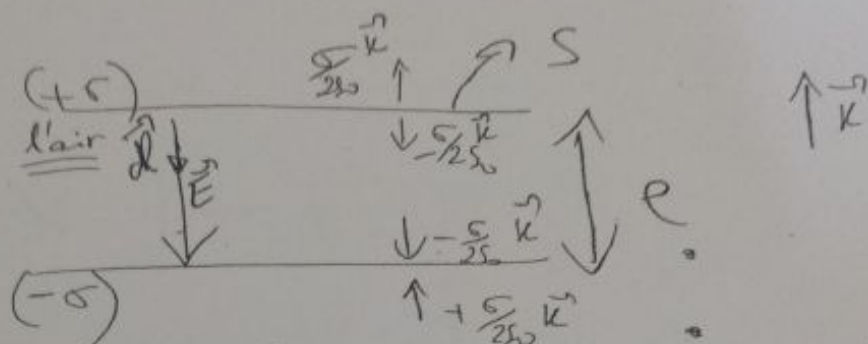 σ/2ε₀ k⃗
S
(+σ)
k⃗
l'air
d⃗l
-σ/2ε₀ k⃗
E⃗
e
-σ/2ε₀ k⃗
(-σ)
+σ/2ε₀ k⃗